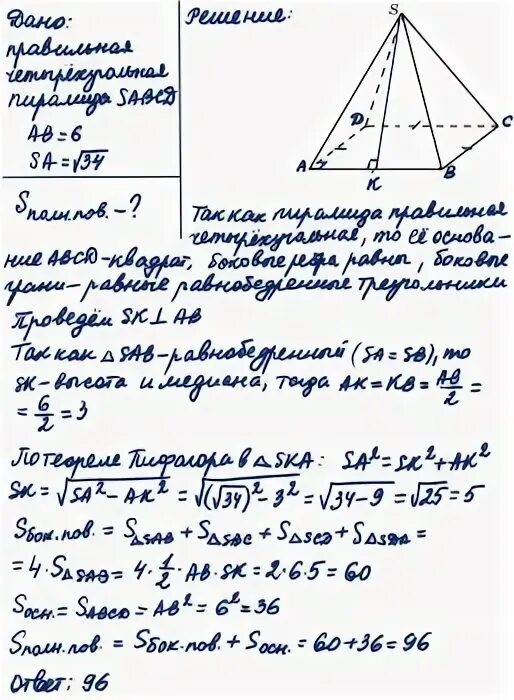 Дано:
правильная
четырёхугольная
пирамида SABCD
AB = 6
SA = √34
Sполн.пов. - ?
Решение:
S
D
C
A
K
B
Так как пирамида правильная
четырёхугольная, то её основа-
ние ABCD - квадрат, боковые рёбра равны, боковые
грани - равные равнобедренные треугольники
Проведём SK ⊥ AB
Так как △SAB - равнобедренный (SA = SB), то
SK - высота и медиана, тогда AK = KB = AB/2 =
= 6/2 = 3
По теореме Пифагора в △SKA: SA² = SK² + AK²
SK = √(SA² - AK²) = √((√34)² - 3²) = √(34 - 9) = √25 = 5
Sбок.пов. = S△SAB + S△SBC + S△SCD + S△SDA =
= 4 · S△SAB = 4 · 1/2 · AB · SK = 2 · 6 · 5 = 60
Sосн. = SABCD = AB² = 6² = 36
Sполн.пов. = Sбок.пов. + Sосн. = 60 + 36 = 96
Ответ: 96